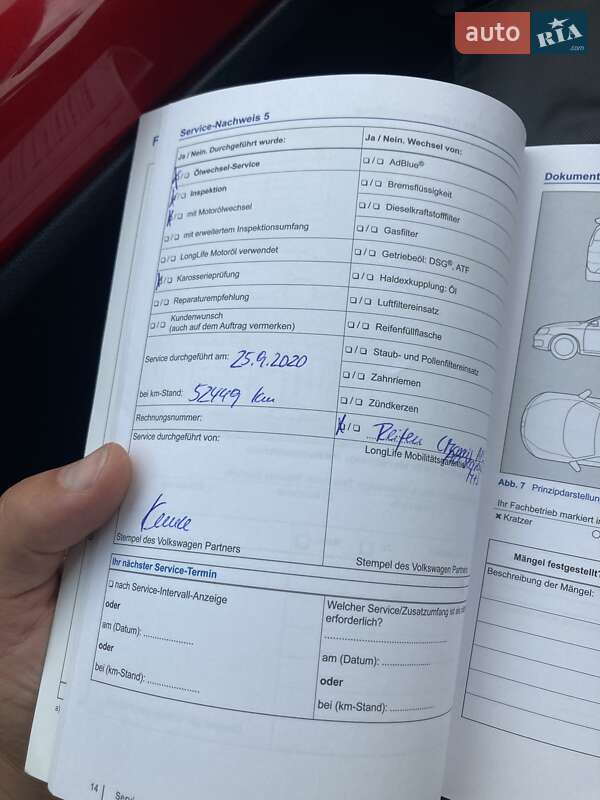 auto RIA
.com
Service-Nachweis 5
F
Ja / Nein. Durchgeführt wurde:
❑/❑ Ölwechsel-Service
❑/❑ Inspektion
❑/❑ mit Motorölwechsel
❑/❑ mit erweitertem Inspektionsumfang
❑/❑ LongLife Motoröl verwendet
❑/❑ Karosserieprüfung
❑/❑ Reparaturempfehlung
❑/❑ Kundenwunsch
(auch auf dem Auftrag vermerken)
Service durchgeführt am: 25.9.2020
bei km-Stand: 52449 km
Rechnungsnummer:
Service durchgeführt von:
Stempel des Volkswagen Partners
Ja / Nein. Wechsel von:
❑/❑ AdBlue®
❑/❑ Bremsflüssigkeit
❑/❑ Dieselkraftstofffilter
❑/❑ Gasfilter
❑/❑ Getriebeöl: DSG®, ATF
❑/❑ Haldexkupplung: Öl
❑/❑ Luftfiltereinsatz
❑/❑ Reifenfüllflasche
❑/❑ Staub- und Pollenfiltereinsatz
❑/❑ Zahnriemen
❑/❑ Zündkerzen
❑/❑ Reifen
LongLife Mobilitätsgarantie
Stempel des Volkswagen Partners
Ihr nächster Service-Termin
❑ nach Service-Intervall-Anzeige
oder
am (Datum): ....................
oder
bei (km-Stand): ....................
Welcher Service/Zusatzumfang ist
erforderlich?
am (Datum): ....................
oder
bei (km-Stand): ..................
14
Dokument
Abb. 7 Prinzipdarstellun
Ihr Fachbetrieb markiert
× Kratzer
Mängel festgestellt?
Beschreibung der Mängel: